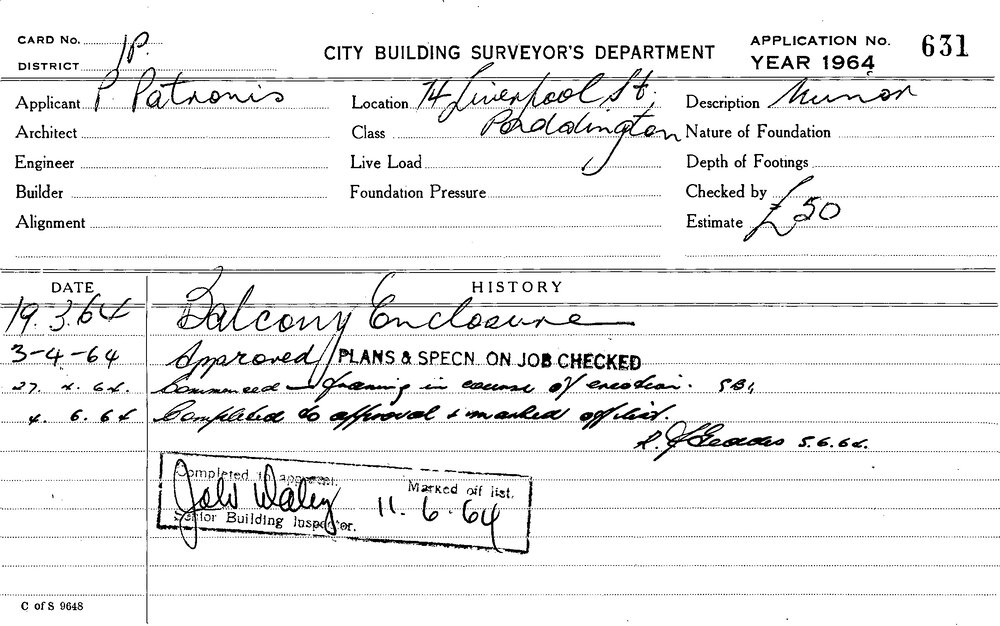 CARD No.
DISTRICT 1P.
CITY BUILDING SURVEYOR'S DEPARTMENT
APPLICATION No. 631
YEAR 1964
Applicant P Patronis
Location 74 Liverpool St,
Description Minor
Architect
Class Paddington
Nature of Foundation
Engineer
Live Load
Depth of Footings
Builder
Foundation Pressure
Checked by
Alignment
Estimate £50
DATE HISTORY
19.3.64 Balcony Enclosure
3-4-64 Approved PLANS & SPECN. ON JOB CHECKED
27.4.64. Commenced - framing in course of erection.
4.6.64 Completed to approval & marked off list.
5.6.64.
Completed to approval. Marked off list.
11.6.64
Senior Building Inspector.
C of S 9648